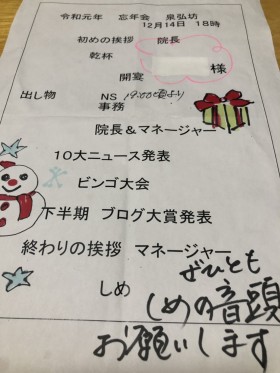 令和元年　忘年会　泉弘坊
12月14日　18時
初めの挨拶　院長
乾杯　様
開宴
出し物　NS　19:00頃より
事務
院長＆マネージャー
10大ニュース発表
ビンゴ大会
下半期　ブログ大賞発表
終わりの挨拶　マネージャー
しめ
ぜひとも
しめの音頭
お願いします